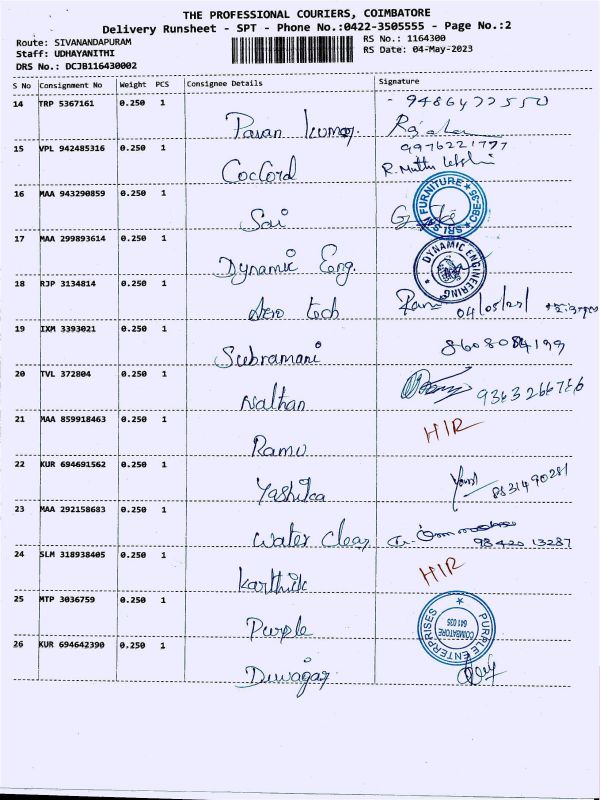 THE PROFESSIONAL COURIERS, COIMBATORE
Delivery Runsheet - SPT - Phone No.:0422-3505555 - Page No.:2
Route: SIVANANDAPURAM RS No.: 1164300
Staff: UDHAYANITHI RS Date: 04-May-2023
DRS No.: DCJB116430002
S No Consignment No Weight PCS Consignee Details Signature
14 TRP 5367161 0.250 1
Pavan Kumar
15 VPL 942485316 0.250 1 9976221777
Cocford R. Muthu Lekshi
16 MAA 943290859 0.250 1
Sai
SRI SAI FURNITURE CBE-35
17 MAA 299893614 0.250 1
Dynamic Eng.
DYNAMIC ENGINEERING
18 RJP 3134814 0.250 1
Aero tech 04/05/23
19 IXM 3393021 0.250 1
Subramani
20 TVL 372804 0.250 1
Nathan
21 MAA 859918463 0.250 1 HIR
Ramu
22 KUR 694691562 0.250 1
Yashika 8531490281
23 MAA 292158683 0.250 1
Water Clear 98420 13287
24 SLM 318938405 0.250 1 HIR
Karthik
25 MTP 3036759 0.250 1
Purple
PURPLE ENTERPRISES COIMBATORE 641 035
26 KUR 694642390 0.250 1
Diwagar